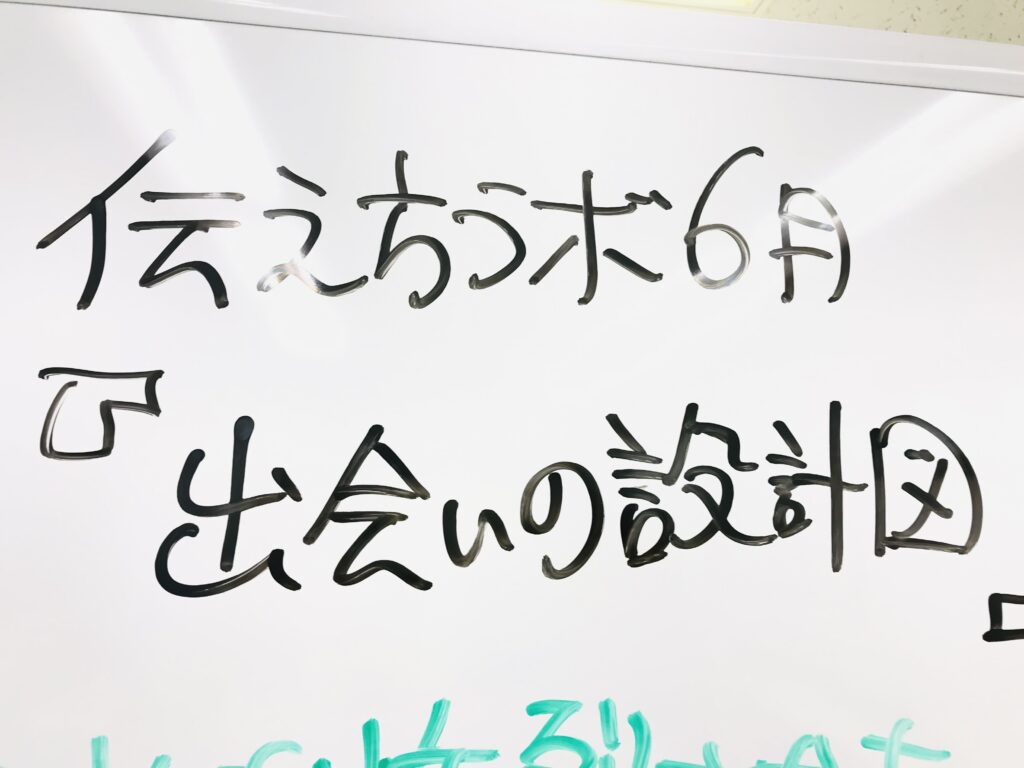 伝えちうボ6月
『出会いの設計図』